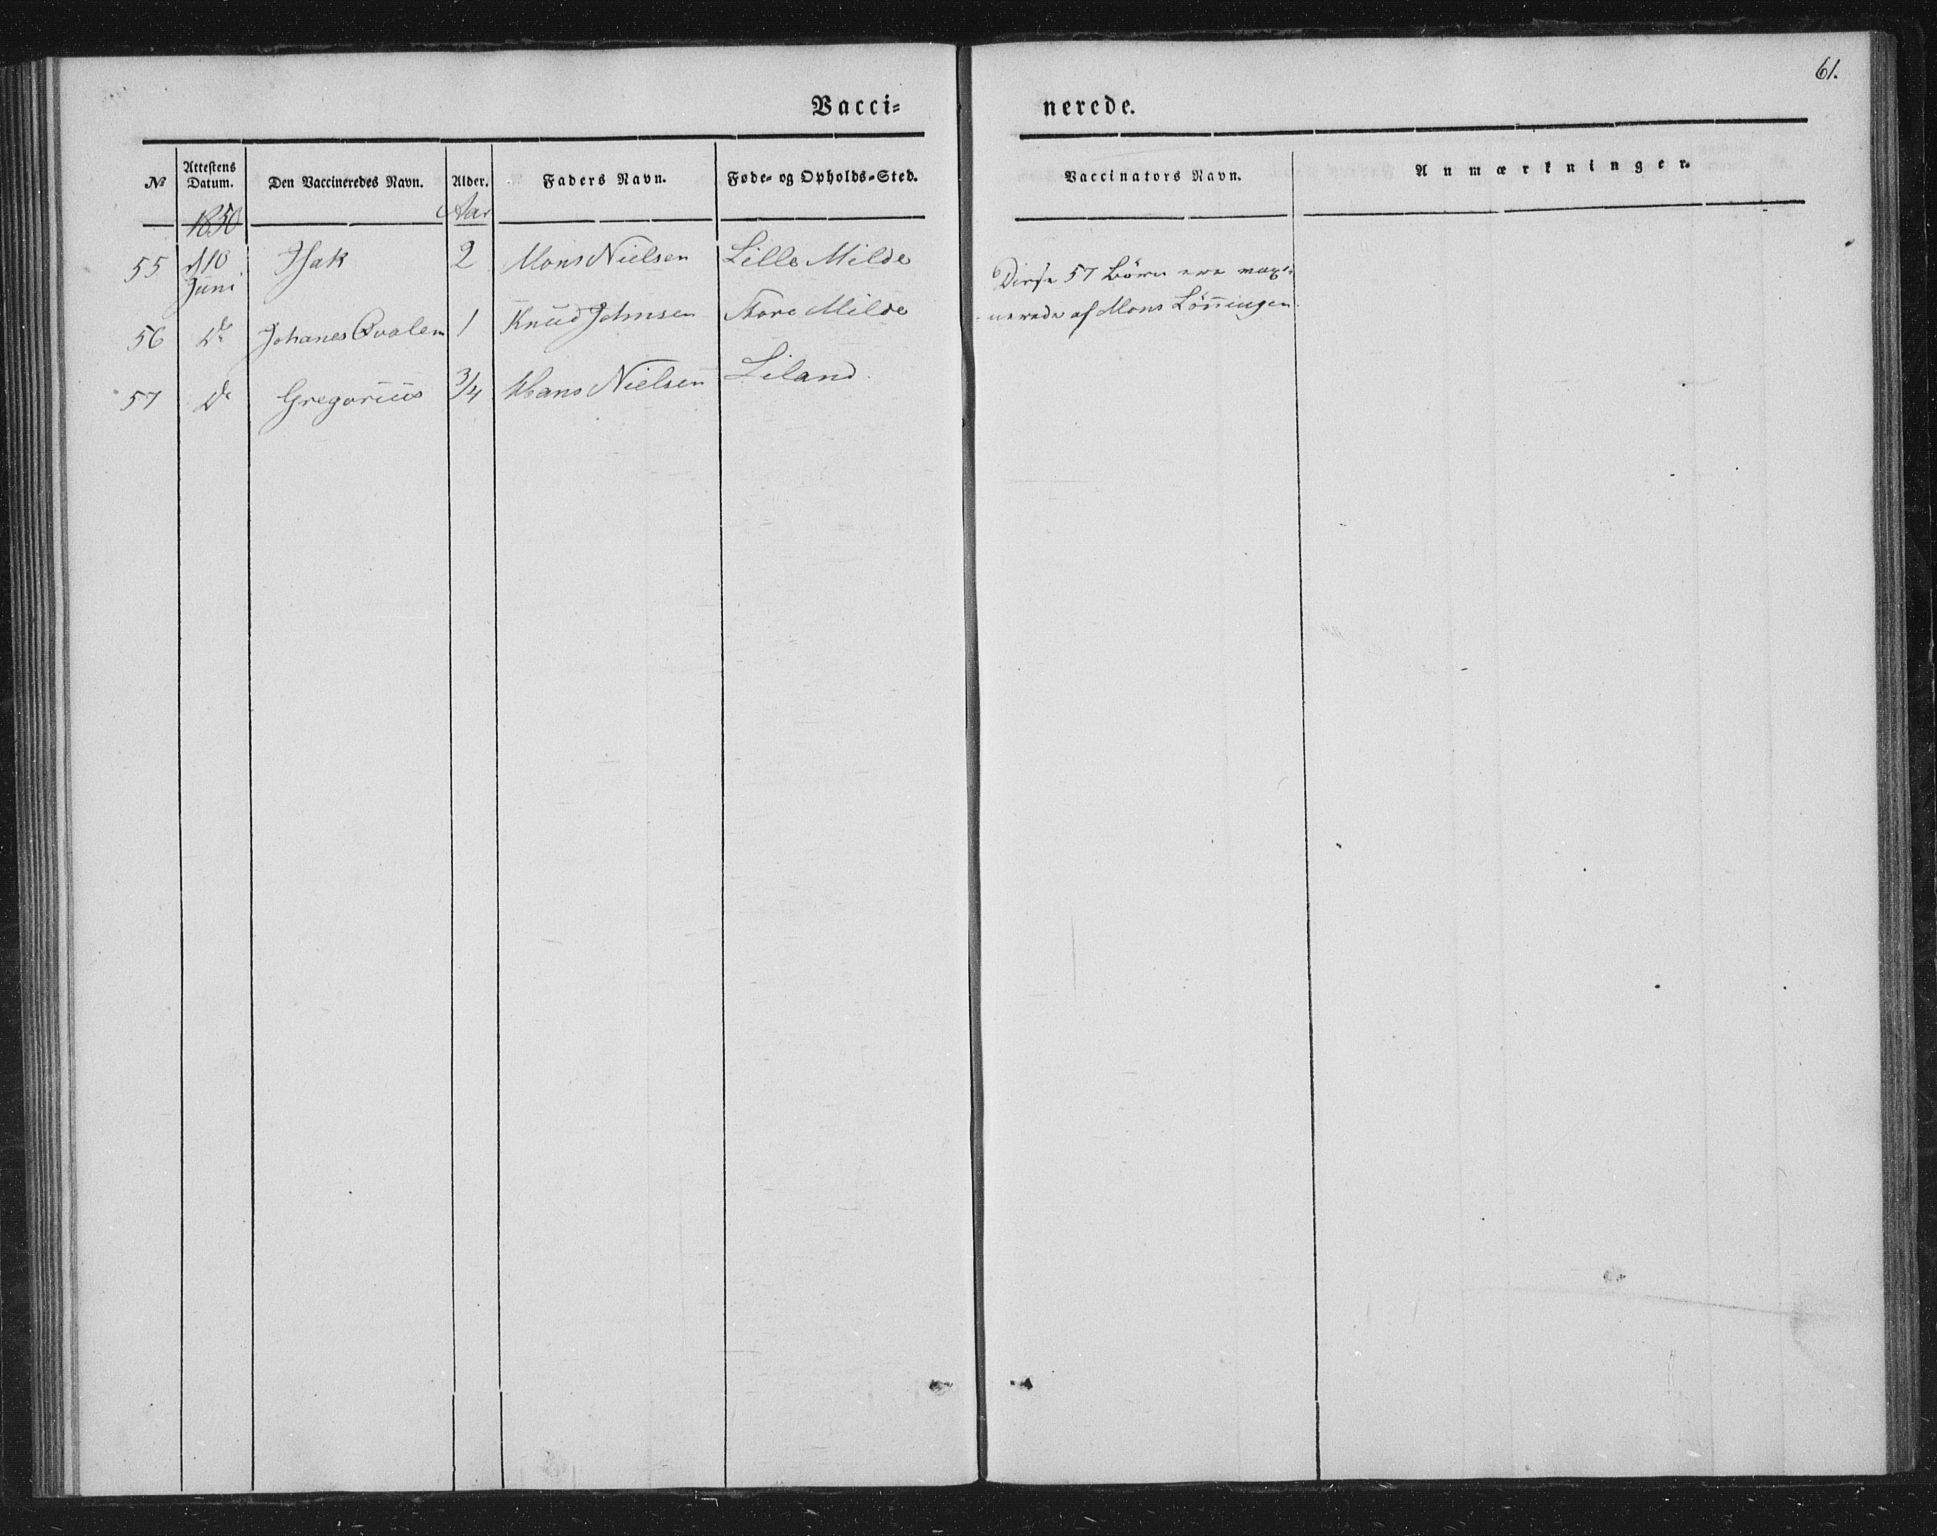 61.
Vacci=
nerede.
№ Attestens Datum. Den Vaccineredes Navn. Alder. Faders Navn. Føde- og Opholds-Sted. Vaccinators Navn. Anmærkninger.
1850 Aar
55 d 10 Juni Isak 2 Mons Nielsen Lille Milde
56 Do Johanes Qvalem 1 Knud Johnsen Store Milde
57 Do Gregorius 3/4 Hans Nielsen Liland
Disse 57 Børn ere vaxi-
nerede af Mons Lönningen.